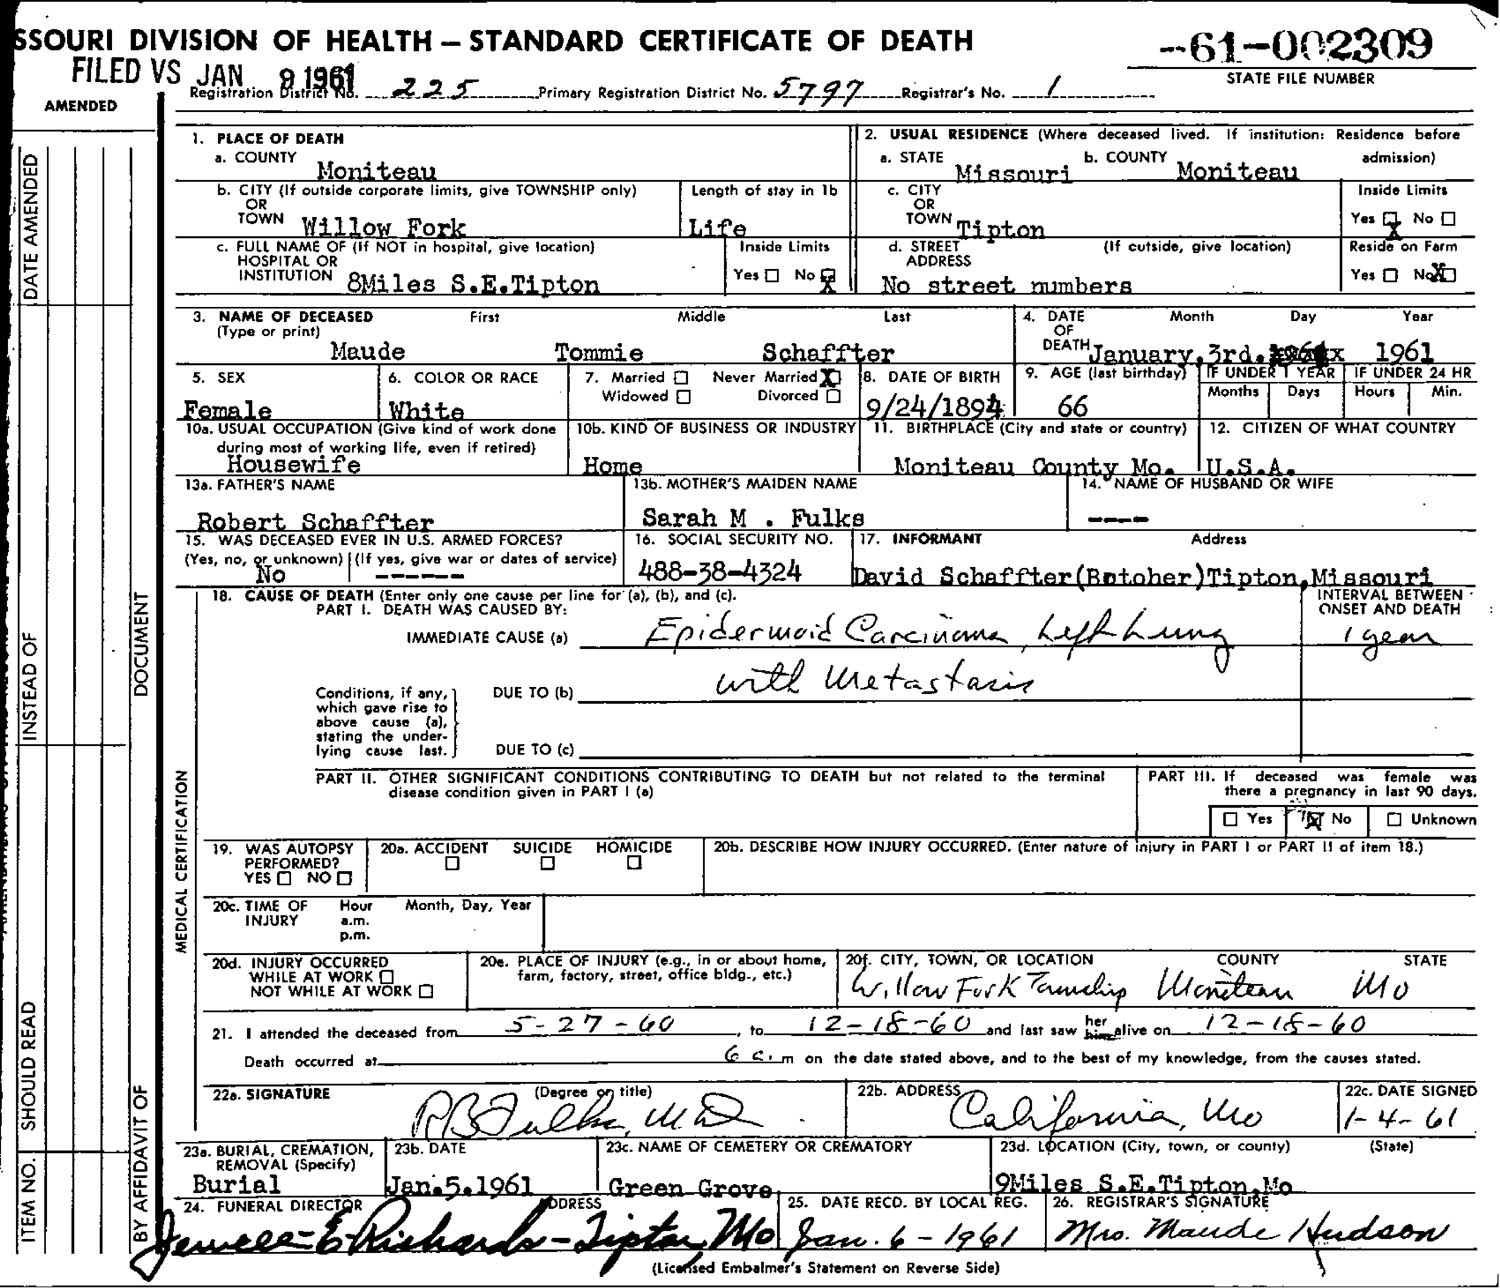 SSOURI DIVISION OF HEALTH – STANDARD CERTIFICATE OF DEATH
-61-002309
STATE FILE NUMBER
FILED VS JAN 9 1961
Registration District No. 225 Primary Registration District No. 5797 Registrar's No. 1
AMENDED
DATE AMENDED
INSTEAD OF
SHOULD READ
ITEM NO.
DOCUMENT
BY AFFIDAVIT OF
MEDICAL CERTIFICATION
1. PLACE OF DEATH
a. COUNTY Moniteau
b. CITY (If outside corporate limits, give TOWNSHIP only) OR TOWN Willow Fork
Length of stay in 1b Life
c. FULL NAME OF (If NOT in hospital, give location) HOSPITAL OR INSTITUTION 8Miles S.E.Tipton
Inside Limits Yes ☐ No X
2. USUAL RESIDENCE (Where deceased lived. If institution: Residence before admission)
a. STATE Missouri b. COUNTY Moniteau
c. CITY OR TOWN Tipton
Inside Limits Yes X No ☐
d. STREET ADDRESS (If outside, give location) No street numbers
Reside on Farm Yes ☐ No X
3. NAME OF DECEASED (Type or print) First Middle Last
Maude Tommie Schaffter
4. DATE OF DEATH Month Day Year
January.3rd. 1961
5. SEX Female
6. COLOR OR RACE White
7. Married ☐ Never Married X Widowed ☐ Divorced ☐
8. DATE OF BIRTH 9/24/1894
9. AGE (last birthday) 66
IF UNDER 1 YEAR Months Days
IF UNDER 24 HR Hours Min.
10a. USUAL OCCUPATION (Give kind of work done during most of working life, even if retired) Housewife
10b. KIND OF BUSINESS OR INDUSTRY Home
11. BIRTHPLACE (City and state or country) Moniteau County Mo.
12. CITIZEN OF WHAT COUNTRY U.S.A.
13a. FATHER'S NAME Robert Schaffter
13b. MOTHER'S MAIDEN NAME Sarah M . Fulks
14. NAME OF HUSBAND OR WIFE ----
15. WAS DECEASED EVER IN U.S. ARMED FORCES? (Yes, no, or unknown) (If yes, give war or dates of service) No ------
16. SOCIAL SECURITY NO. 488-38-4324
17. INFORMANT Address
David Schaffter(Brtoher)Tipton,Missouri
18. CAUSE OF DEATH (Enter only one cause per line for (a), (b), and (c).
INTERVAL BETWEEN ONSET AND DEATH
PART I. DEATH WAS CAUSED BY:
IMMEDIATE CAUSE (a) Epidermoid Carcinoma, Left Lung 1 year
Conditions, if any, which gave rise to above cause (a), stating the underlying cause last.
DUE TO (b) with Metastasis
DUE TO (c)
PART II. OTHER SIGNIFICANT CONDITIONS CONTRIBUTING TO DEATH but not related to the terminal disease condition given in PART I (a)
PART III. If deceased was female was there a pregnancy in last 90 days.
☐ Yes X No ☐ Unknown
19. WAS AUTOPSY PERFORMED? YES ☐ NO ☐
20a. ACCIDENT ☐ SUICIDE ☐ HOMICIDE ☐
20b. DESCRIBE HOW INJURY OCCURRED. (Enter nature of injury in PART I or PART II of item 18.)
20c. TIME OF INJURY Hour a.m. p.m. Month, Day, Year
20d. INJURY OCCURRED WHILE AT WORK ☐ NOT WHILE AT WORK ☐
20e. PLACE OF INJURY (e.g., in or about home, farm, factory, street, office bldg., etc.)
20f. CITY, TOWN, OR LOCATION COUNTY STATE
Willow Fork Township Moniteau Mo
21. I attended the deceased from 5-27-60, to 12-18-60 and last saw her him alive on 12-18-60
Death occurred at 6 a.m on the date stated above, and to the best of my knowledge, from the causes stated.
22a. SIGNATURE (Degree or title) RB Fulks, M.D.
22b. ADDRESS California, Mo
22c. DATE SIGNED 1-4-61
23a. BURIAL, CREMATION, REMOVAL (Specify) Burial
23b. DATE Jan.5.1961
23c. NAME OF CEMETERY OR CREMATORY Green Grove
23d. LOCATION (City, town, or county) (State) 9Miles S.E.Tipton,Mo
24. FUNERAL DIRECTOR ADDRESS
Jewell E Richards - Tipton, Mo
25. DATE RECD. BY LOCAL REG. Jan. 6 - 1961
26. REGISTRAR'S SIGNATURE Mrs. Maude Hudson
(Licensed Embalmer's Statement on Reverse Side)